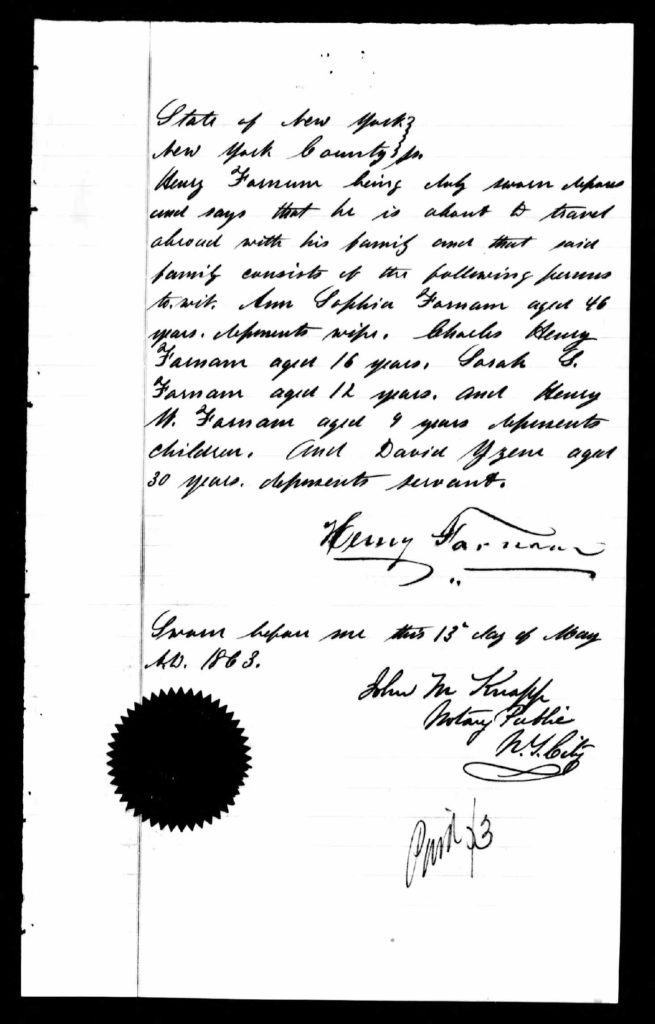 State of New York }
New York County } ss.
Henry Farnum being duly sworn deposes
and says that he is about to travel
abroad with his family and that said
family consists of the following persons
to. wit. Ann Sophia Farnam aged 46
years. deponents wife. Charles Henry
Farnam aged 16 years. Sarah S.
Farnam aged 12 years. and Henry
W. Farnam aged 9 years deponents
children. And David aged
30 years. deponents servant.
Henry Farnam
Sworn before me this 13" day of May
A.D. 1863.
John M Knapp
Notary Public
N.Y. City
Paid $3